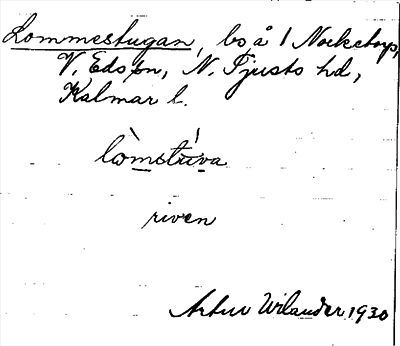 Lommestugan, bs å 1 Nocketorp,
V. Eds sn, N. Tjusts hd,
Kalmar l.
lòmstúva
riven
Artur Wilander 1930